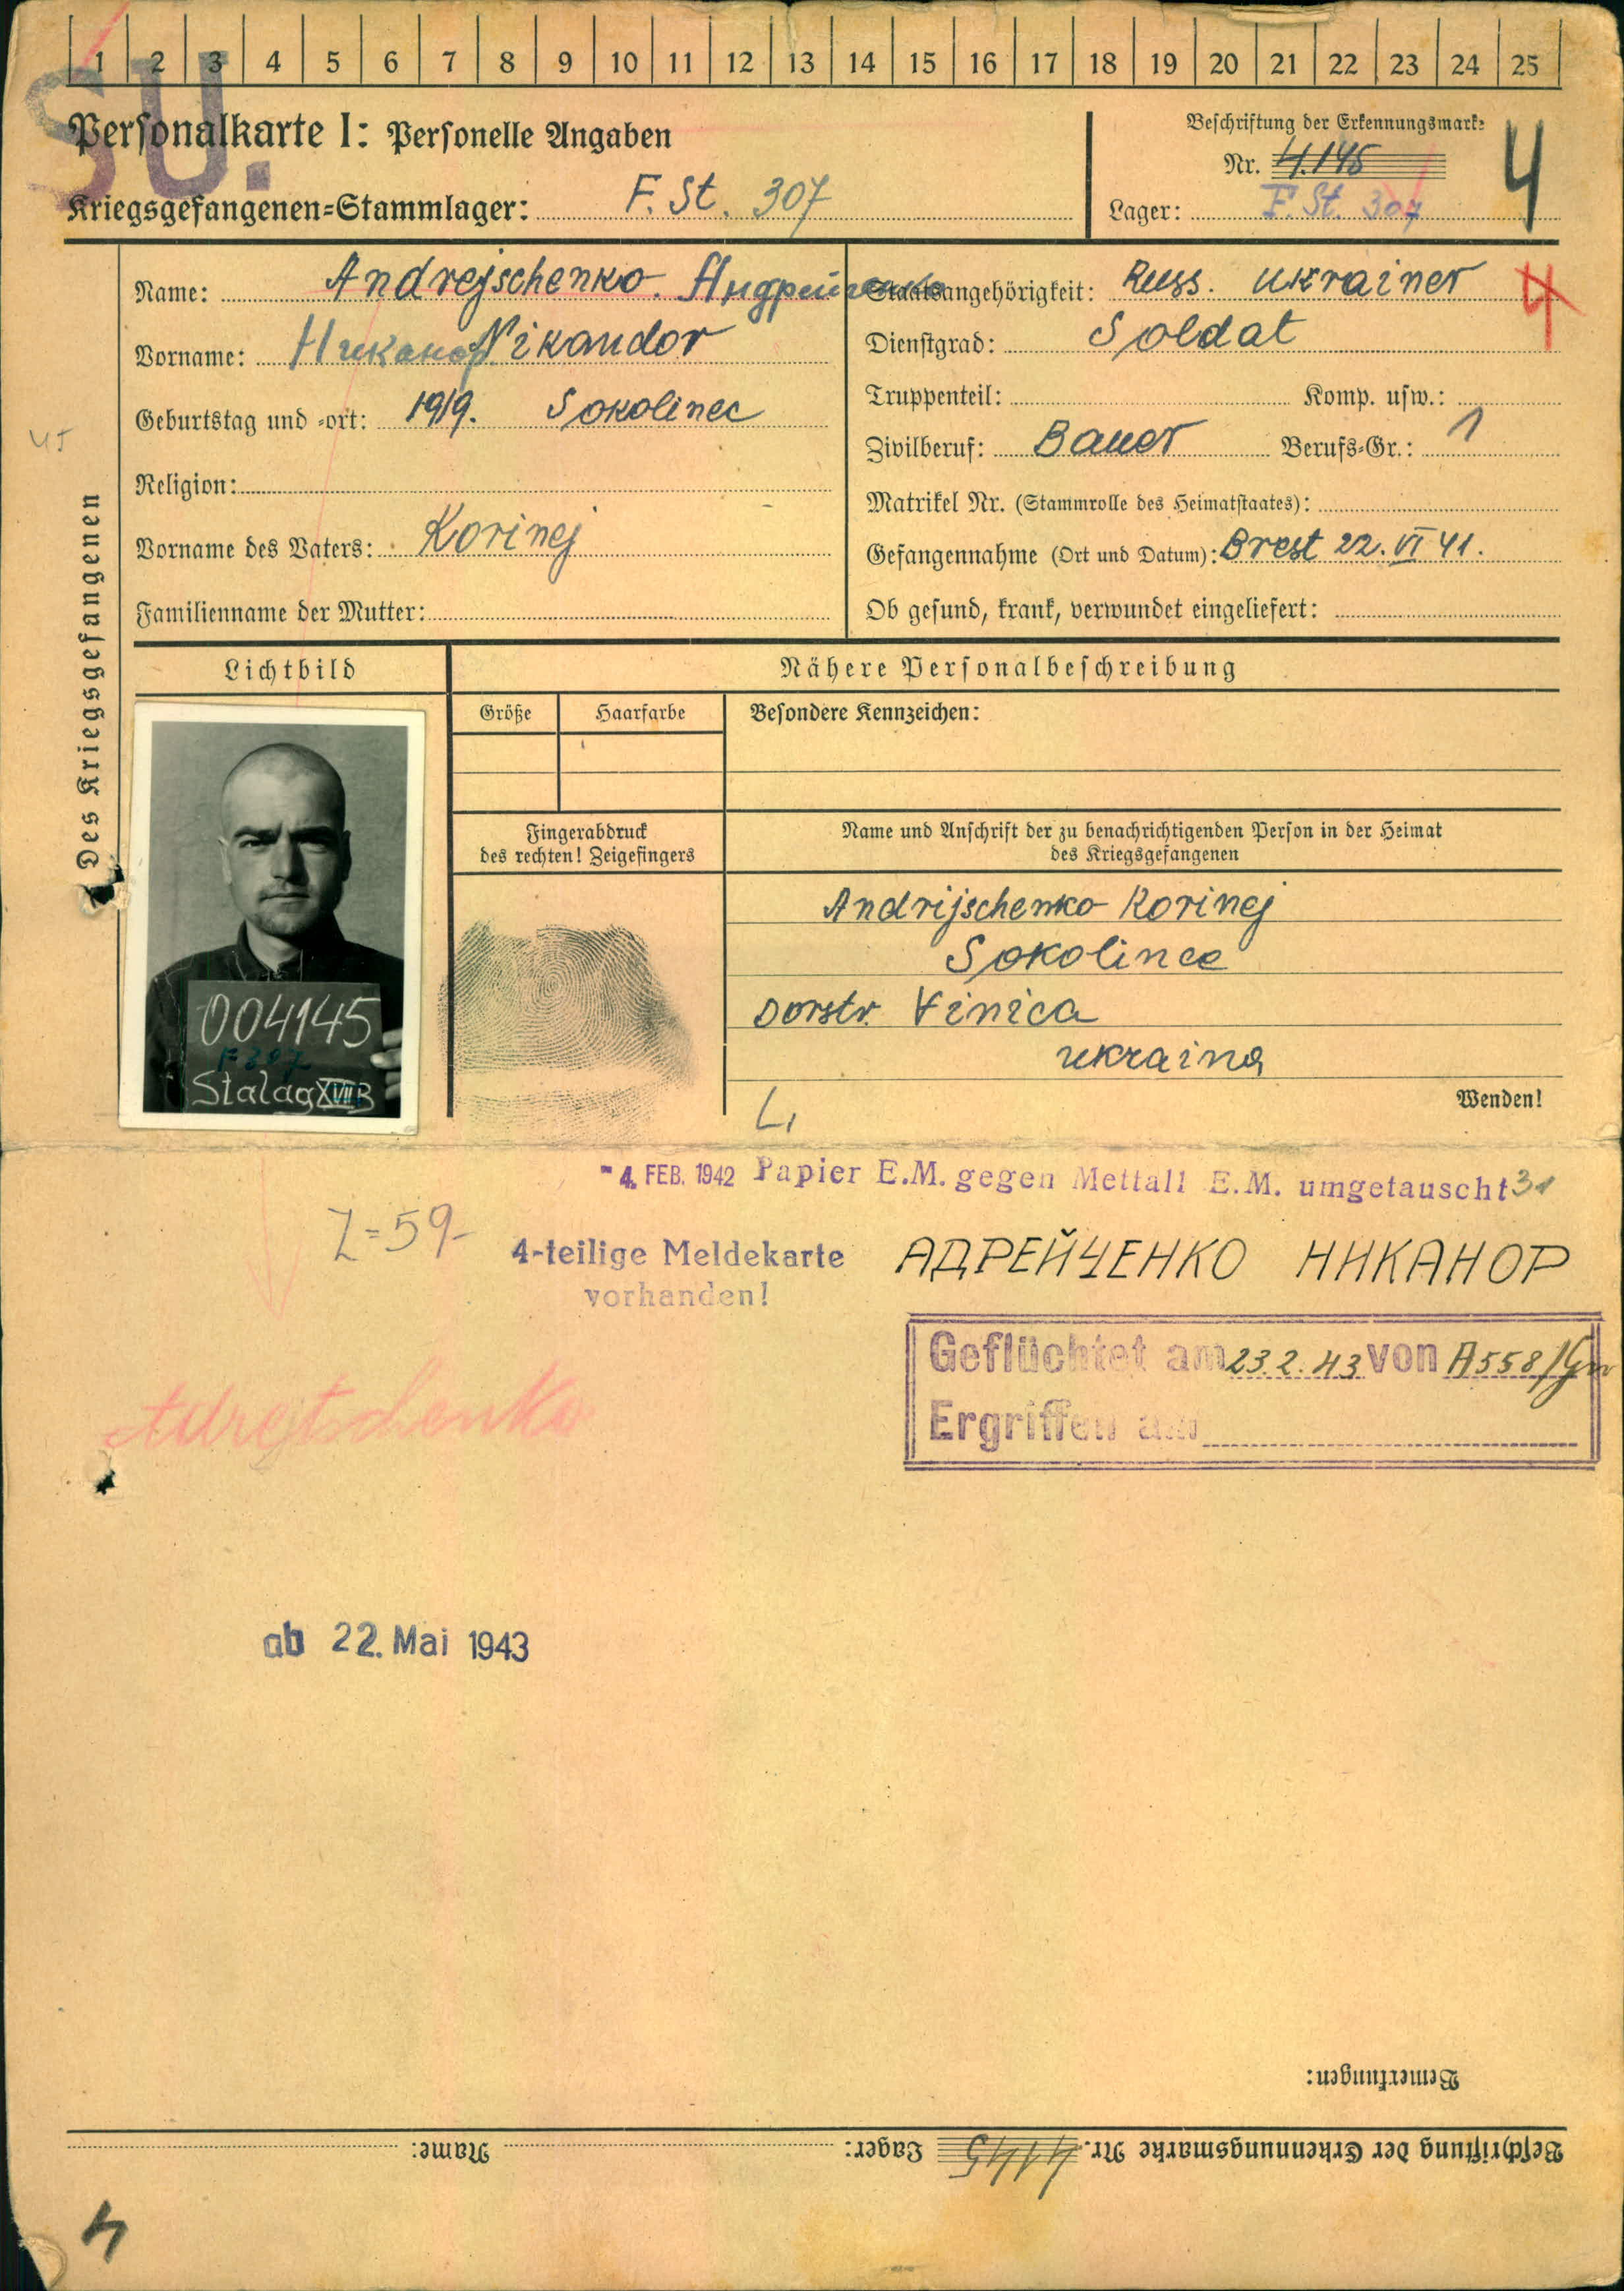 1 2 3 4 5 6 7 8 9 10 11 12 13 14 15 16 17 18 19 20 21 22 23 24 25
SU.
Personalkarte I: Personelle Angaben
Beschriftung der Erkennungsmarke
Nr. 4.145
4
Kriegsgefangenen-Stammlager: F. St. 307
Lager: F. St. 307
Des Kriegsgefangenen
Name: Andrejschenko. Андрейченко
Vorname: Никанор Nikandor
Geburtstag und -ort: 1919. Sokolinec
Religion:
Vorname des Vaters: Korinej
Familienname der Mutter:
Staatsangehörigkeit: Russ. Ukrainer
4
Dienstgrad: Soldat
Truppenteil: Komp. usw.:
Zivilberuf: Bauer Berufs-Gr.: 1
Matrikel Nr. (Stammrolle des Heimatstaates):
Gefangennahme (Ort und Datum): Brest 22. VI 41.
Ob gesund, krank, verwundet eingeliefert:
Lichtbild
Nähere Personalbeschreibung
Größe
Haarfarbe
Besondere Kennzeichen:
Fingerabdruck
des rechten! Zeigefingers
Name und Anschrift der zu benachrichtigenden Person in der Heimat
des Kriegsgefangenen
Andrijschenko Korinej
Sokolince
Vinica
Ukraina
Wenden!
004145
F 307
Stalag XVII B
4. FEB. 1942 Papier E.M. gegen Mettall E.M. umgetauscht
Z=59-
4-teilige Meldekarte
vorhanden!
АДРЕЙЧЕНКО НИКАНОР
Geflüchtet am 23.2.43 von A558/Gw
Ergriffen am
Adrejtschenko
ab 22. Mai 1943
Bemerkungen:
Beschriftung der Erkennungsmarke Nr. 4145 Lager: Name:
4